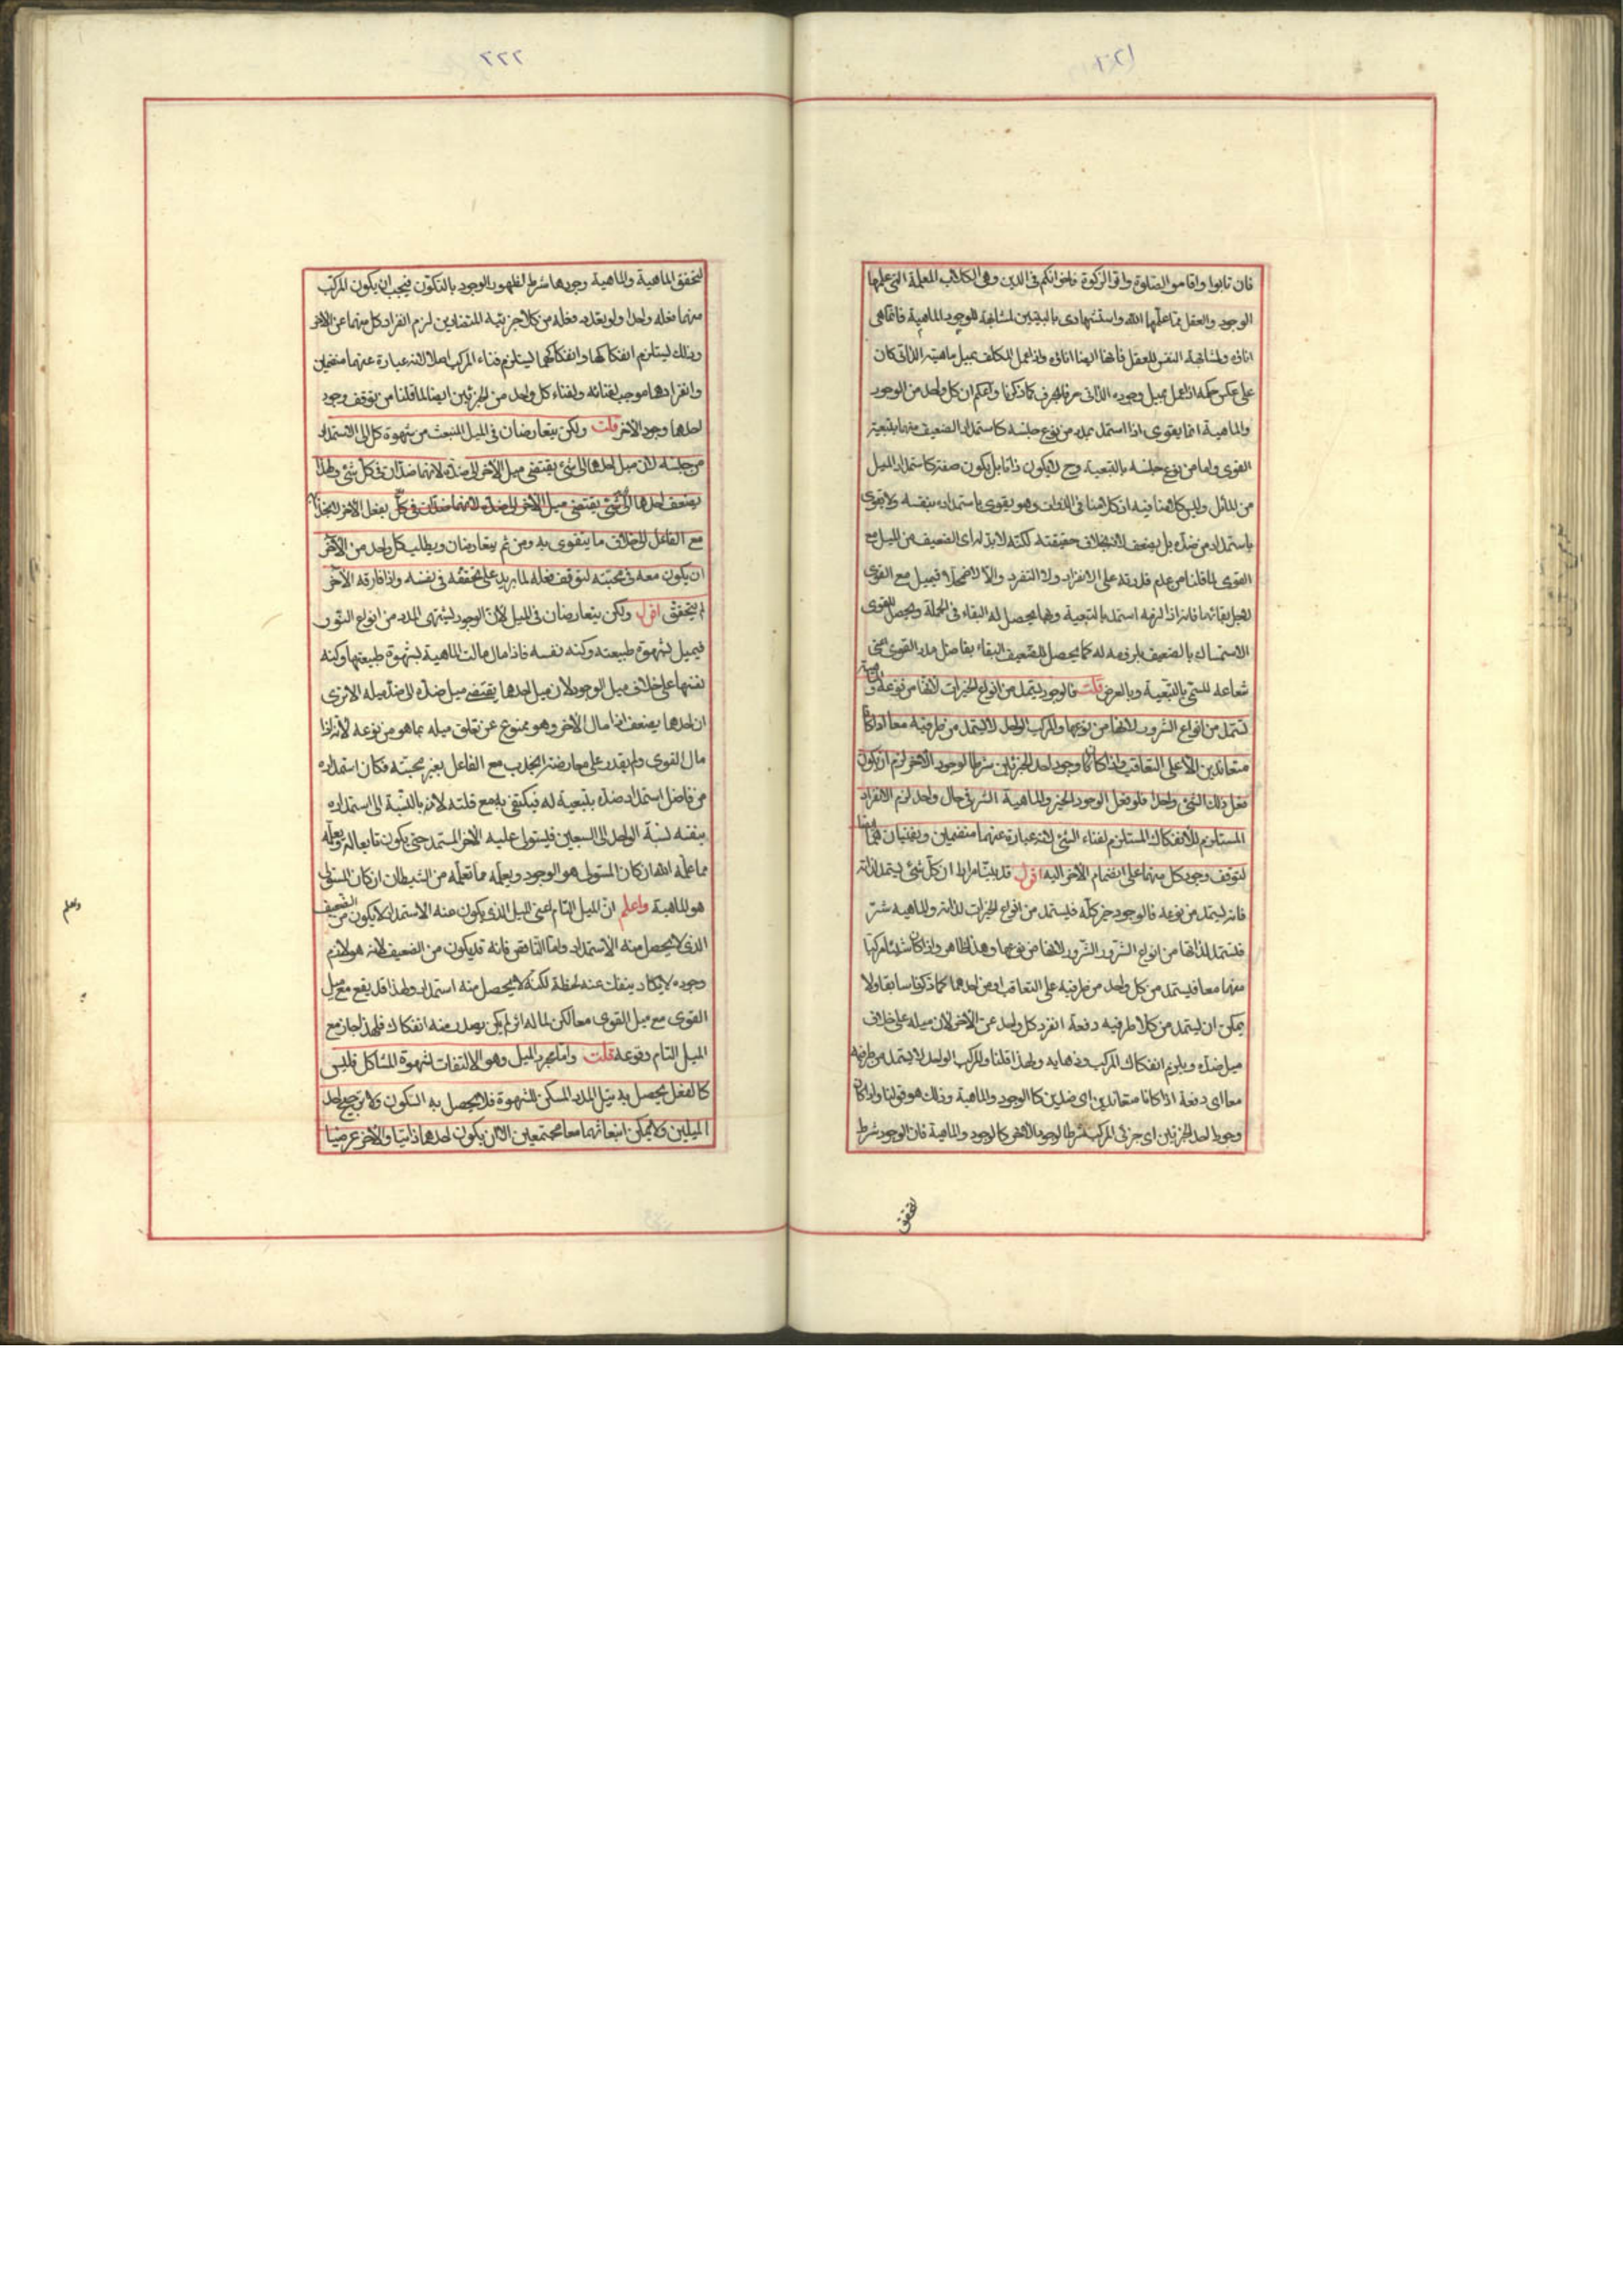 فان تابوا واقاموا الصلوة واتوا الزكوة فاخوانكم فى الدين وهى الكلاب المعلمة التى علمها
الوجود والعقل مما علمها الله واستشهادى بالبيتين لمشابهة الوجود للماهية فانما هى
انائه ولمشابهة النفس للعقل فانها ايضا انائه واذا عمل المكلف بميل ماهيته الذاتى كان
على عكس حكمه اذا عمل بميل وجوده الذاتى حرفا بحرف كما ذكرنا واعلم ان كل واحد من الوجود
والماهية انما يقوى اذا استمد بمدد من نوع جنسه كاستمداد الضعيف منهما بتبعية
القوى واما من نوع جنسه بالتبعية وح لايكون ذاتا بل يكون صفة كاستمداد الميل
من المائل وليس كلامنا فيه اذ كلامنا فى الذوات وهو يقوى باستمداده بنفسه ولا يقوى
باستمداده من ضده بل يضعف لانه بخلاف حقيقته لكنه لابد له اى الضعيف من الميل مع
القوى لما قلنا من عدم قدرته على الانفراد ولا التفرد والا لاضمحلا فيميل مع القوى
لاجل بقائهما فانه اذا لزمه استمد بالتبعية وبها يحصل له البقاء فى الجملة ويحصل للقوى
الاستمساك بالضعيف بلزومه له كما يحصل للضعيف البقاء بفاضل مدد القوى اعنى
شعاعه المسمى بالتبعية وبالعرض قلت فالوجود يستمد من انواع الخيرات لانها من نوعه والماهية
تستمد من انواع الشرور لانها من نوعها والمركب الواحد لا يستمد من طرفيه معا اذا كانا
متعاندين الا على التعاقب واذا كان وجود احد الجزئين شرطا لوجود الاخر لزم ان يكون
فعل ذلك الشئ واحدا فلو فعل الوجود الخير والماهية الشر فى حال واحد لزم الانفراد
المستلزم للانفكاك المستلزم لفناء الشئ لانه عبارة عنهما منضمين ويفنيان ايضا
لتوقف وجود كل منهما على انضمام الاخر اليه اقول قد بينا مرارا ان كل شئ يستمد لذاته
فانه يستمد من نوعه فالوجود خير كله فيستمد من انواع الخيرات لذاته والماهية شر
فتستمد لذاتها من انواع الشرور الشرور لانها من نوعها وهذا ظاهر واذا كان شيئا مركبا
منهما معا فيستمد من كل واحد من طرفيه على التعاقب او من احدهما كما ذكرنا سابقا ولا
يمكن ان يستمد من كلا طرفيه دفعة انفرد كل واحد عن الاخر لان ميله على خلاف
ميل ضده ويلزم انفكاك المركب وذهابه ولهذا قلنا والمركب الواحد لا يستمد من طرفيه
معا اى دفعة اذا كانا متعاندين اى ضدين كالوجود والماهية وذلك هو قولنا واذا كان
وجود احد الجزئين اى جزئى المركب شرطا لوجود الاخر كالوجود والماهية فان الوجود شرط
لتحقق
٢٢٢
لتحقق الماهية والماهية وجودها شرط لظهور الوجود بالتكون فيجب ان يكون للمركب
منهما فعله واحدا ولو تعدد فعله من كلا جزئيه المتضادين لزم انفراد كل منهما عن الاخر
وذلك يستلزم انفكاكهما وانفكاكهما يستلزم فناء المركب اصلا لانه عبارة عنهما منضمين
وانفرادهما موجب لفنائه ولفناء كل واحد من الجزئين ايضا لما قلنا من توقف وجود
احدهما وجود الاخر قلت ولكن يتعارضان فى الميل المنبعث من شهوة كل الى الاستمداد
من جنسه لان ميل احدهما الى شئ يقتضى ميل الاخر الى ضده لانهما ضدان فى كل شئ ولهذا
يضعف احدهما الى شئ يقتضى ميل الاخر الى ضده لانهما ضدان فى كل بفعل الاخر لانجذابه
مع الفاعل الى خلاف ما يتقوى به ومن ثم يتعارضان ويطلب كل واحد من الآخر
ان يكون معه فى محبته لتوقف فعله لما يريد على تحققه فى نفسه واذا فارقه الآخر
لم يتحقق اقول ولكن يتعارضان فى الميل لان الوجود يشتهى المدد من انواع النور
فيميل بشهوة طبيعته وكنه نفسه فاذا مال مالت الماهية بشهوة طبيعتها وكنه
نفسها على خلاف ميل الوجود لان ميل احدهما يقتضى ميل ضده الى ضد ميله الا ترى
ان احدهما يضعف اذا مال الاخر وهو ممنوع عن تعلق ميله بما هو من نوعه لانه اذا
مال القوى ولم يقدر على معارضته انجذب مع الفاعل بغير محبته فكان استمداده
من فاضل استمداد ضده بتبعية له فيكتفى به مع قلته لانه بالنسبة الى استمداده
بنفسه نسبة الواحد الى السبعين فيستولى عليه الاخر المستمد حتى يكون تابعا له ويعلمه
مما علمه الله ان كان المستولى هو الوجود ويعلمه ما تعلمه من الشيطان ان كان المستولى
هو الماهية واعلم ان الميل التام اعنى الميل الذى يكون عنه الاستمداد لا يكون من الضعيف
الذى لا يحصل منه الاستمداد واما الناقص فانه قد يكون من الضعيف لانه هو لازم
وجوده لايكاد ينفك عنه لحظة لكنه لا يحصل منه استمداد ولهذا قد يقع مع ميل
القوى مع ميل القوى معا لكن لما له اثر لم يكن يصدر منه انفكاك فلهذا جاز مع
الميل التام وقوعه قلت واما مجرد الميل وهو الالتفات لشهوة المشاكل فليس
كالفعل يحصل به نيل المدد المسكن للشهوة فلا يحصل به السكون ولا ترجيح احد
الميلين ولا يمكن انبعاثهما معا مجتمعين الا ان يكون احدهما ذاتيا والآخر عرضيا